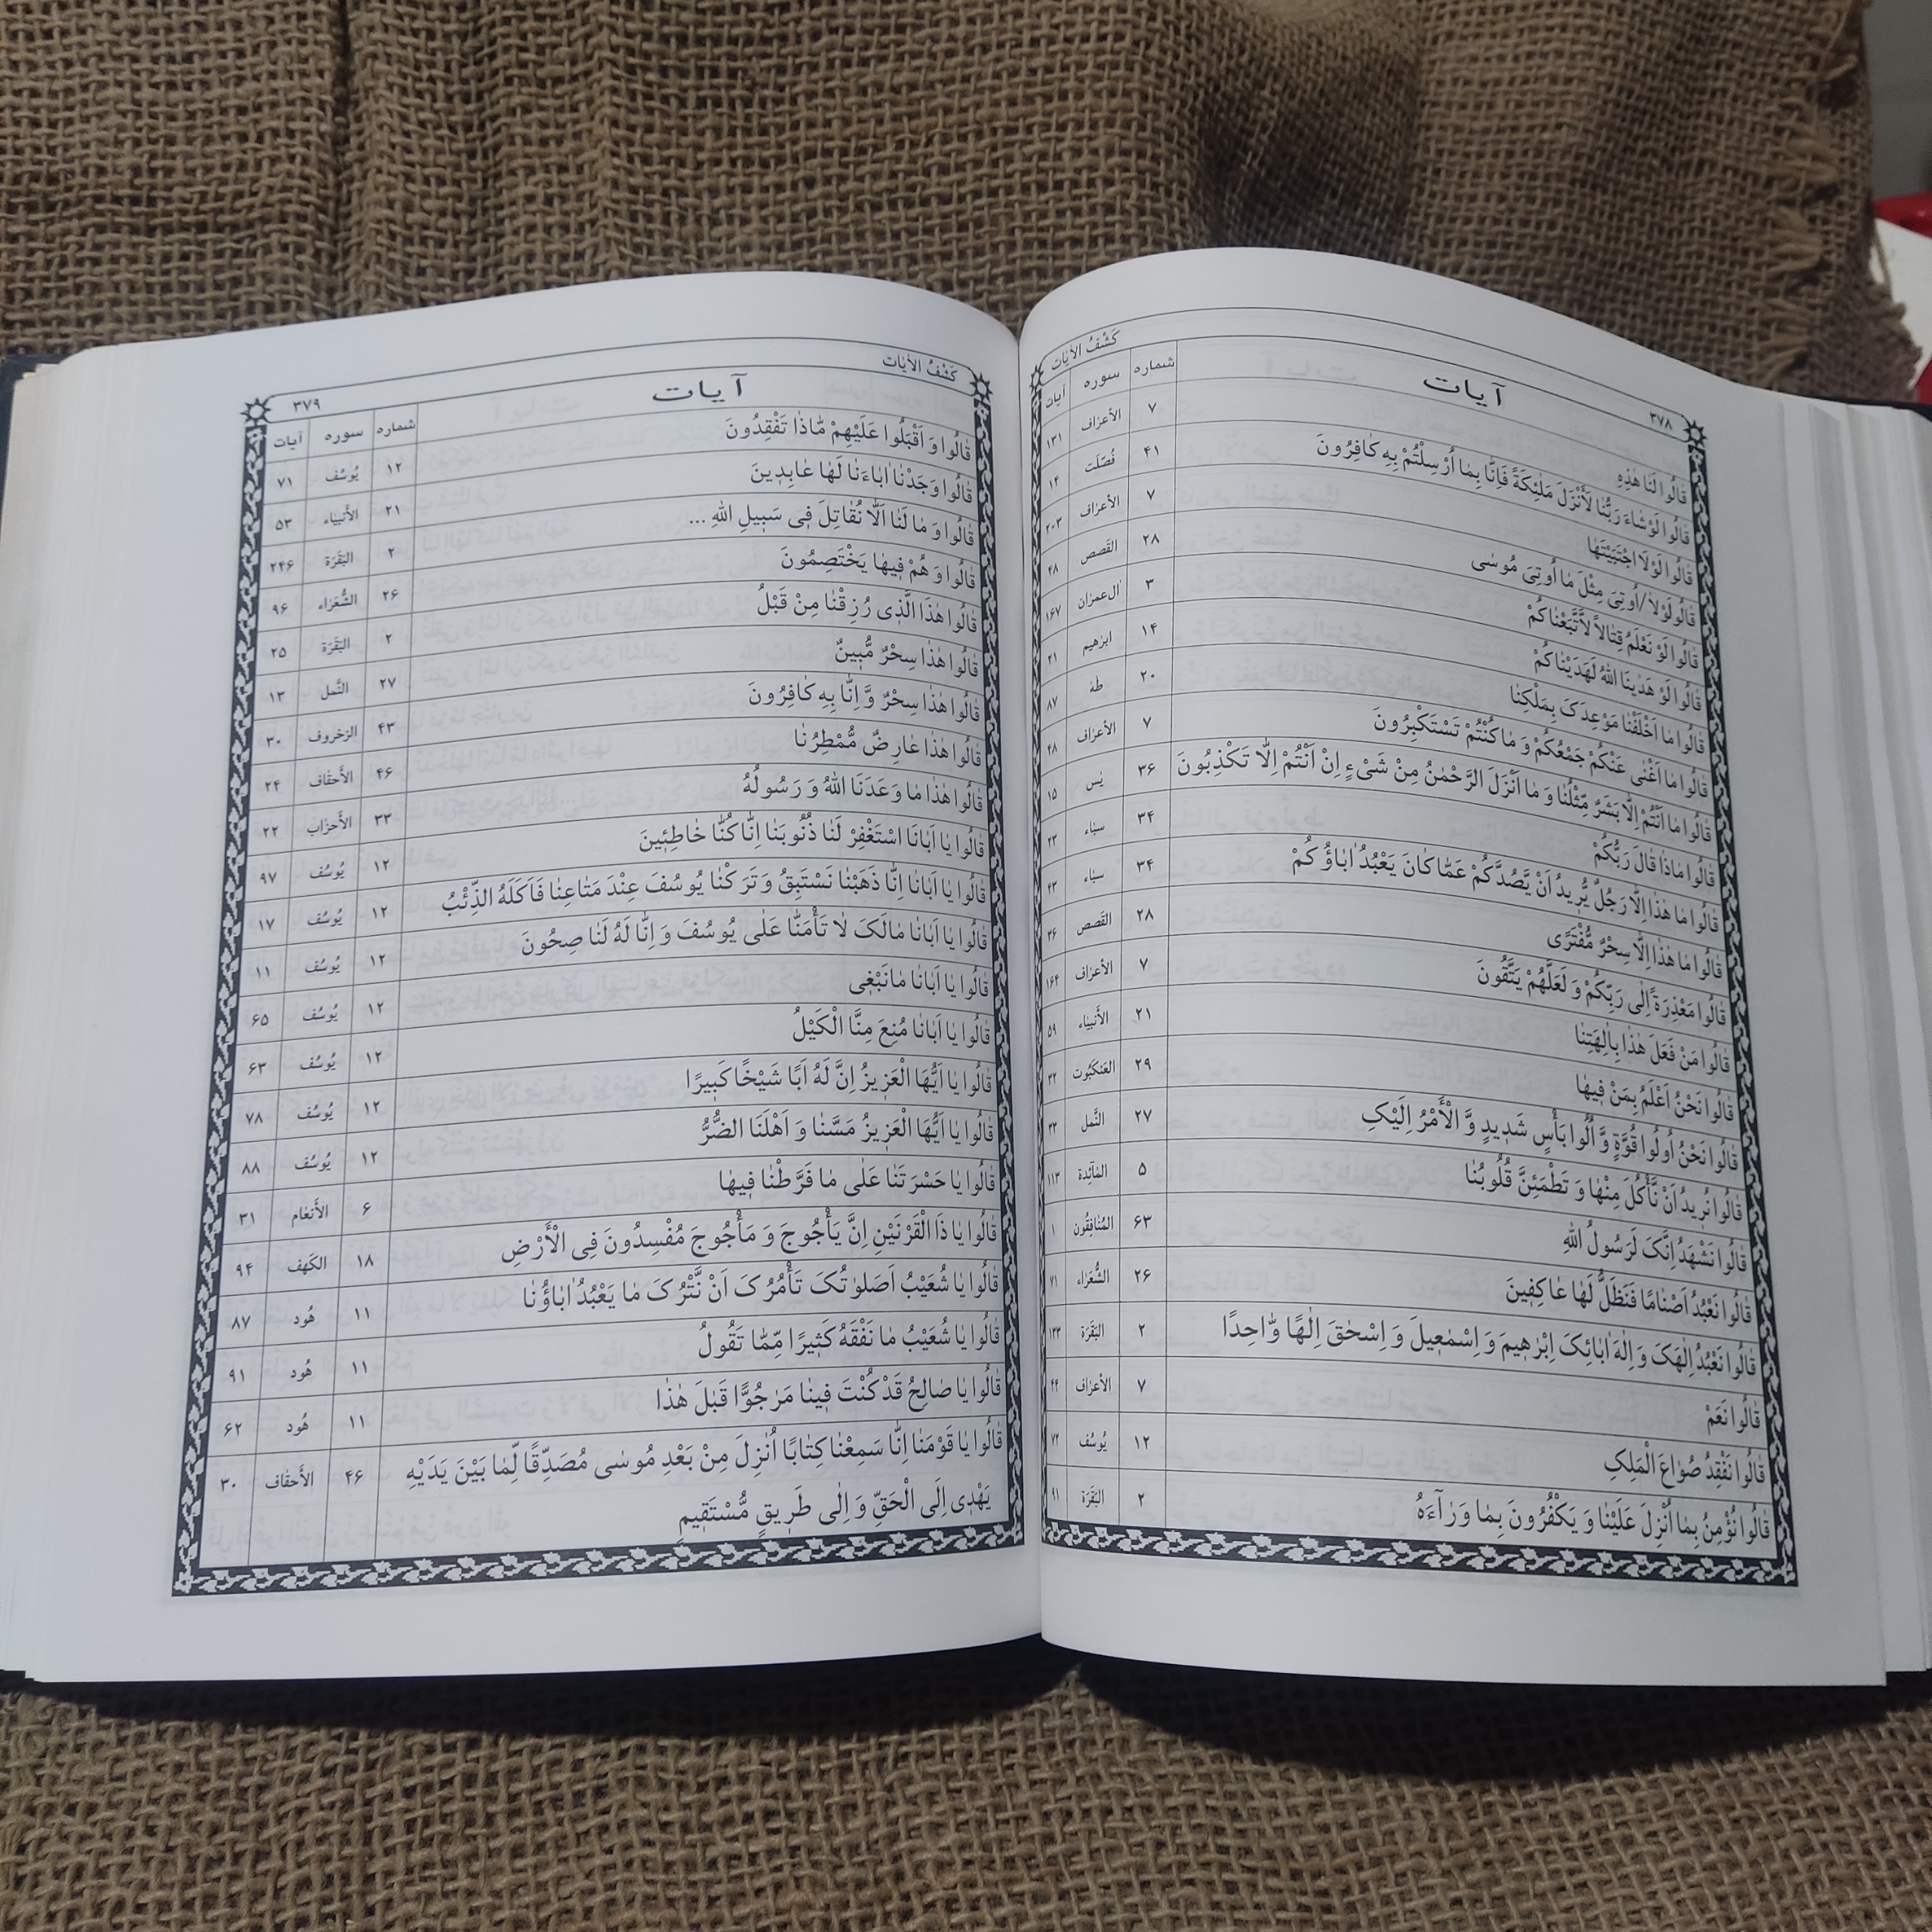 ۳۷۸ كَشْفُ الاٰيات
آيات شماره سوره آيات
قٰالُوا لَنٰا هٰذِهِ ۷ الأعراف ۱۳۱
قٰالُوا لَوْ شٰاءَ رَبُّنٰا لَأَنْزَلَ مَلٰئِكَةً فَاِنّٰا بِمٰا اُرْسِلْتُمْ بِهِ كٰافِرُونَ ۴۱ فُصّلَت ۱۴
قٰالُوا لَوْلاَ اجْتَبَيْتَهٰا ۷ الأعراف ۲۰۳
قٰالُو لَوْلا/اُوتِىَ مِثْلَ مٰا اُوتِىَ مُوسٰى ۲۸ القَصص ۴۸
قٰالُوا لَوْ نَعْلَمُ قِتٰالاً لاَّتَّبَعْنٰاكُمْ ۳ اٰل عمرٰان ۱۶۷
قٰالُوا لَوْ هَدٰينَا اللّٰهُ لَهَدَيْنٰاكُمْ ۱۴ ابرٰهيم ۲۱
قٰالُوا مٰا اَخْلَفْنٰا مَوْعِدَكَ بِمَلْكِنٰا ۲۰ طٰهٰ ۸۷
قٰالُوا مٰا اَغْنٰى عَنْكُمْ جَمْعُكُمْ وَ مٰا كُنْتُمْ تَسْتَكْبِرُونَ ۷ الأعراف ۴۸
قٰالُوا مٰا اَنْتُمْ اِلاّٰ بَشَرٌ مِّثْلُنٰا وَ مٰا اَنْزَلَ الرَّحْمٰنُ مِنْ شَىْءٍ اِنْ اَنْتُمْ اِلاّٰ تَكْذِبُونَ ۳۶ يٰس ۱۵
قٰالُوا مٰاذٰا قٰالَ رَبُّكُمْ ۳۴ سبٰاء ۲۳
قٰالُوا مٰا هٰذٰا اِلاّٰ رَجُلٌ يُّرٖيدُ اَنْ يَّصُدَّكُمْ عَمّٰا كٰانَ يَعْبُدُ اٰبٰاؤُكُمْ ۳۴ سبٰاء ۴۳
قٰالُوا مٰا هٰذٰا اِلاّٰ سِحْرٌ مُّفْتَرًى ۲۸ القَصص ۳۶
قٰالُوا مَعْذِرَةً اِلٰى رَبِّكُمْ وَ لَعَلَّهُمْ يَتَّقُونَ ۷ الأعراف ۱۶۴
قٰالُوا مَنْ فَعَلَ هٰذٰا بِاٰلِهَتِنٰا ۲۱ الأنبيٰاء ۵۹
قٰالُوا نَحْنُ اَعْلَمُ بِمَنْ فٖيهٰا ۲۹ العَنكبُوت ۳۲
قٰالُوا نَحْنُ اُولُوا قُوَّةٍ وَّ اُلُوا بَأْسٍ شَدٖيدٍ وَّ الْأَمْرُ اِلَيْكِ ۲۷ النَّمل ۳۳
قٰالُوا نُرٖيدُ اَنْ نَّأْكُلَ مِنْهٰا وَ تَطْمَئِنَّ قُلُوبُنٰا ۵ المٰائِدة ۱۱۳
قٰالُوا نَشْهَدُ اِنَّكَ لَرَسُولُ اللّٰهِ ۶۳ المُنٰافِقُون ۱
قٰالُوا نَعْبُدُ اَصْنٰامًا فَنَظَلُّ لَهٰا عٰاكِفٖينَ ۲۶ الشُّعَرٰاء ۷۱
قٰالُوا نَعْبُدُ اِلٰهَكَ وَ اِلٰهَ اٰبٰائِكَ اِبْرٰهٖيمَ وَ اِسْمٰعٖيلَ وَ اِسْحٰقَ اِلٰهًا وّٰاحِدًا ۲ البَقَرَة ۱۳۳
قٰالُوا نَعَمْ ۷ الأعراف ۴۴
قٰالُوا نَفْقِدُ صُوٰاعَ الْمَلِكِ ۱۲ يُوسُف ۷۲
قٰالُوا نُؤْمِنُ بِمٰا اُنْزِلَ عَلَيْنٰا وَ يَكْفُرُونَ بِمٰا وَرٰآءَهُ ۲ البَقَرَة ۹۱
كَشْفُ الاٰيات ۳۷۹
آيات شماره سوره آيات
قٰالُوا وَ اَقْبَلُوا عَلَيْهِمْ مّٰاذٰا تَفْقِدُونَ ۱۲ يُوسُف ۷۱
قٰالُوا وَجَدْنٰا اٰبٰاءَنٰا لَهٰا عٰابِدٖينَ ۲۱ الأنبيٰاء ۵۳
قٰالُوا وَ مٰا لَنٰا اَلاّٰ نُقٰاتِلَ فٖى سَبٖيلِ اللّٰهِ ... ۲ البَقَرَة ۲۴۶
قٰالُوا وَ هُمْ فٖيهٰا يَخْتَصِمُونَ ۲۶ الشُّعَرٰاء ۹۶
قٰالُوا هٰذَا الَّذٖى رُزِقْنٰا مِنْ قَبْلُ ۲ البَقَرَة ۲۵
قٰالُوا هٰذٰا سِحْرٌ مُّبٖينٌ ۲۷ النَّمل ۱۳
قٰالُوا هٰذٰا سِحْرٌ وَّ اِنّٰا بِهِ كٰافِرُونَ ۴۳ الزخروف ۳۰
قٰالُوا هٰذٰا عٰارِضٌ مُّمْطِرُنٰا ۴۶ الأحقٰاف ۲۴
قٰالُوا هٰذٰا مٰا وَعَدَنَا اللّٰهُ وَ رَسُولُهُ ۳۳ الأحزٰاب ۲۲
قٰالُوا يٰا اَبٰانَا اسْتَغْفِرْ لَنٰا ذُنُوبَنٰا اِنّٰا كُنّٰا خٰاطِئٖينَ ۱۲ يُوسُف ۹۷
قٰالُوا يٰا اَبٰانٰا اِنّٰا ذَهَبْنٰا نَسْتَبِقُ وَ تَرَكْنٰا يُوسُفَ عِنْدَ مَتٰاعِنٰا فَاَكَلَهُ الذِّئْبُ ۱۲ يُوسُف ۱۷
قٰالُوا يٰا اَبٰانٰا مٰالَكَ لاٰ تَأْمَنّٰا عَلٰى يُوسُفَ وَ اِنّٰا لَهُ لَنٰا صِحُونَ ۱۲ يُوسُف ۱۱
قٰالُوا يٰا اَبٰانٰا مٰا نَبْغٖى ۱۲ يُوسُف ۶۵
قٰالُوا يٰا اَبٰانٰا مُنِعَ مِنَّا الْكَيْلُ ۱۲ يُوسُف ۶۳
قٰالُوا يٰا اَيُّهَا الْعَزٖيزُ اِنَّ لَهُ اَبًا شَيْخًا كَبٖيرًا ۱۲ يُوسُف ۷۸
قٰالُوا يٰا اَيُّهَا الْعَزٖيزُ مَسَّنٰا وَ اَهْلَنَا الضُّرُّ ۱۲ يُوسُف ۸۸
قٰالُوا يٰا حَسْرَتَنٰا عَلٰى مٰا فَرَّطْنٰا فٖيهٰا ۶ الأنعٰام ۳۱
قٰالُوا يٰا ذَا الْقَرْنَيْنِ اِنَّ يَأْجُوجَ وَ مَأْجُوجَ مُفْسِدُونَ فِى الْأَرْضِ ۱۸ الكَهف ۹۴
قٰالُوا يٰا شُعَيْبُ اَصَلوٰتُكَ تَأْمُرُكَ اَنْ نَّتْرُكَ مٰا يَعْبُدُ اٰبٰاؤُنٰا ۱۱ هُود ۸۷
قٰالُوا يٰا شُعَيْبُ مٰا نَفْقَهُ كَثٖيرًا مِّمّٰا تَقُولُ ۱۱ هُود ۹۱
قٰالُوا يٰا صٰالِحُ قَدْ كُنْتَ فٖينٰا مَرْجُوًّا قَبْلَ هٰذٰا ۱۱ هُود ۶۲
قٰالُوا يٰا قَوْمَنٰا اِنّٰا سَمِعْنٰا كِتٰابًا اُنْزِلَ مِنْ بَعْدِ مُوسٰى مُصَدِّقًا لِّمٰا بَيْنَ يَدَيْهِ ۴۶ الأحقٰاف ۳۰
يَهْدٖى اِلَى الْحَقِّ وَ اِلٰى طَرٖيقٍ مُّسْتَقٖيمٍ